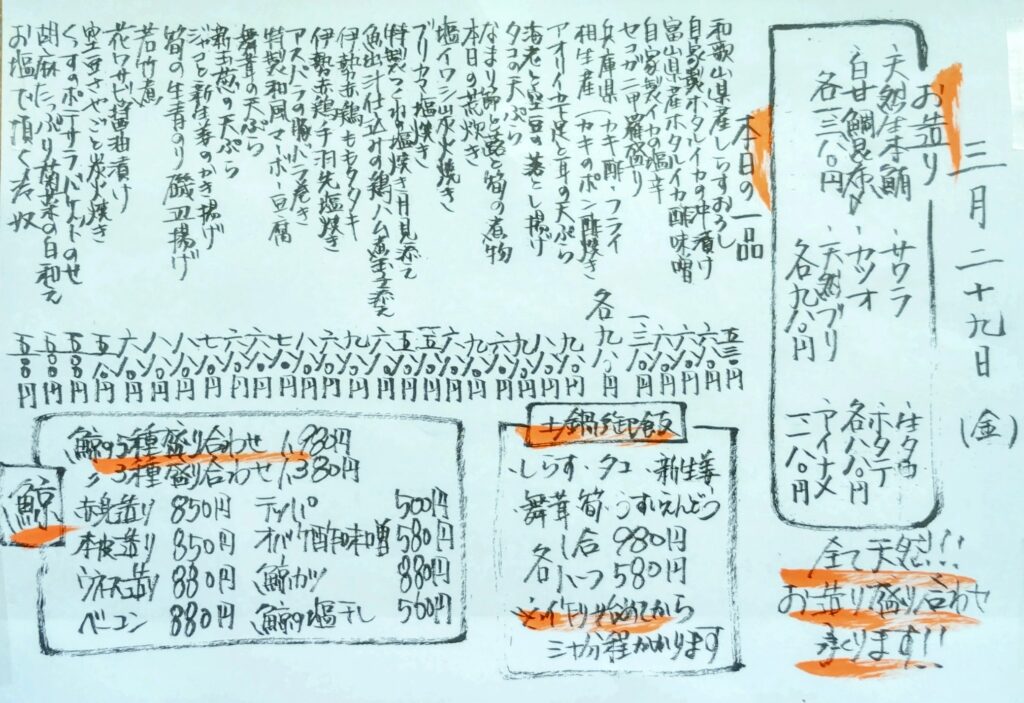 三月二十九日(金)
お造り
・天然生本鮪
・白甘鯛昆布〆
各一三八〇円
・サワラ
・カツオ
・天然ブリ
各九八〇円
・生タコ
・ホタテ
各八八〇円
・アイナメ
一二八〇円
全て天然!!!
お造り盛り合わせ
承ります!!
本日の一品
和歌山県産しらすおろし 五三〇円
自家製ホタルイカの沖漬け 六八〇円
富山県産ホタルイカ酢味噌
自家製イカの塩辛
セコガニ甲羅盛り
兵庫県(カキ酢・フライ
相生産(カキのポン酢焼き 各九八〇円
アオリイカゲソと耳の天ぷら
海老と空豆の落とし揚げ
タコの天ぷら
なまり節と蕗と筍の煮物
本日の荒炊き
塩イワシ炭火焼き
ブリカマ塩焼き
特製つくね塩焼き月見添え
魚出汁仕込みの鶏ハム黄玉添え
伊勢赤鶏ももタタキ
伊勢赤鶏手羽先塩焼き
アスパラの豚バラ巻き
特製和風マーボー豆腐
舞茸の天ぷら
新玉葱の天ぷら
ジャコと新生姜のかき揚げ
筍の生青のり磯辺揚げ
若竹煮
花ワサビ醤油漬け
空豆さやごと炭火焼き
くずのポテサラバケットのせ
胡麻たっぷり菊菜の白和え
お塩で頂く冷奴
土鍋御飯
・しらす・タコ・新生姜
・舞茸・筍・うすいえんどう
各一合 980円
ハーフ 580円
※作り始めてから
三十分程かかります
鯨
鯨の5種盛り合わせ 1,980円
〃3種盛り合わせ 1,380円
赤身造り 850円
本皮造り 850円
ウネス造り 880円
ベーコン 880円
テッパ 500円
オバケ酢味噌 580円
鯨カツ 880円
鯨の塩干し 560円